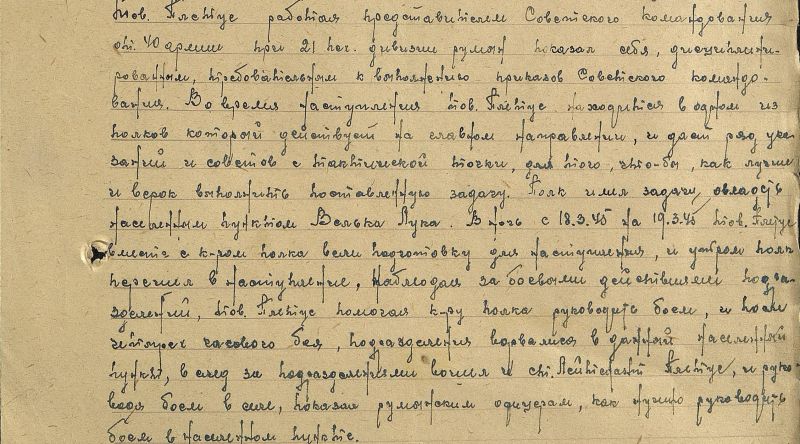 тов. Гнения работая представителем Советского командования
от 40 армии при 21 пех. дивизии румын показал себя, дисциплини-
рованным, требовательным к выполнению приказов Советского командо-
вания. Во время наступления тов. находится в одном из
полков который действует на главном направлении, и даст ряд ука-
заний и советов с тактической точки, для того, что-бы, как лучше
и верок выполнить поставленную задачу. Полк имел задачи, овладеть
населенным пунктом Велька Лука. В ночь с 18.3.45 на 19.3.45 тов.
вместе с к-ром полка вели подготовку для наступления, и утром полк
перешел в наступление, наблюдая за боевыми действиями подра-
зделений, тов. помогая к-ру полка руководить боем, и после
четырех часового боя, подразделения ворвались в данный населенный
пункт, в след за подразделениями вошел и ст. Лейтенант и руко-
водя боем в селе, показал румынским офицерам, как нужно руководить
боем в населенном пункте.